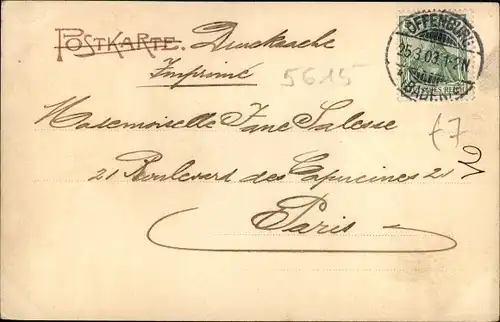 POSTKARTE. Drucksache
Imprimé
5615
OFFENBURG
25.3.03.1-2N
(BADEN)
Mademoiselle Jane Salesse
21 Boulevard des Capucines 21
Paris